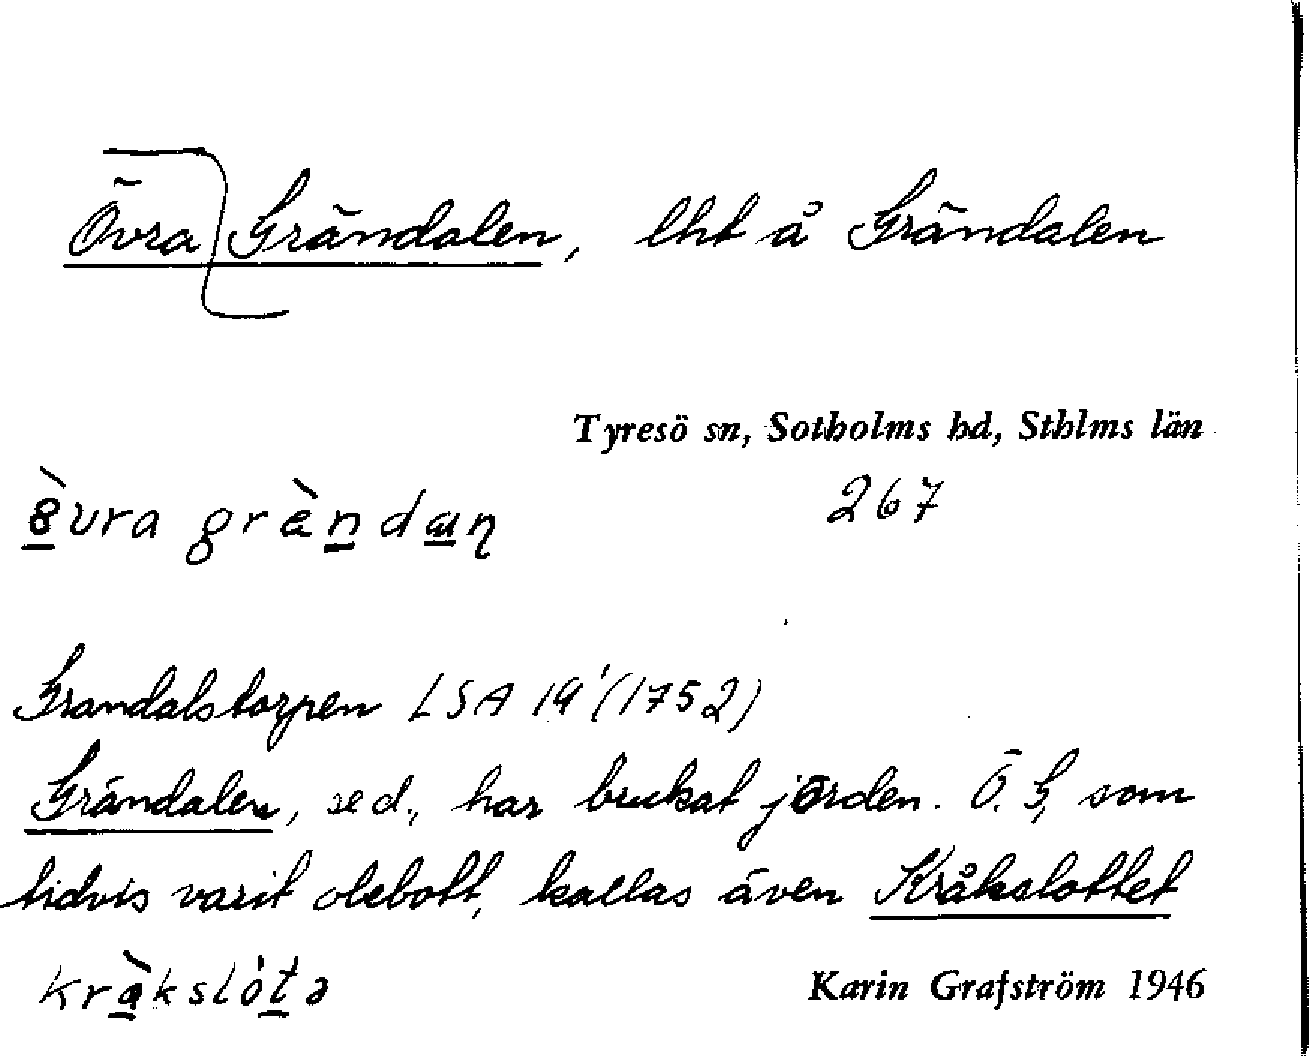 Övra Grändalen, lht å Grändalen
Tyresö sn, Sotholms hd, Sthlms län
267
Grandalstorpen LSA 19' (1752)
Grändalen, se d., har brukat jorden. Ö. G., som
tidvis varit obebott, kallas även Kråkslottet
Karin Grafström 1946